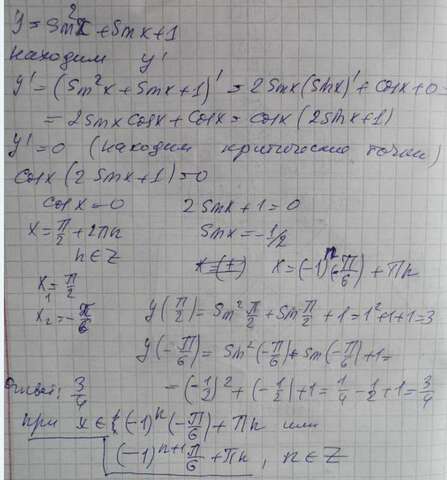 y = sin²x + sinx + 1
находим y'
y' = (sin²x + sinx + 1)' = 2sinx(sinx)' + cosx + 0 =
= 2sinxcosx + cosx = cosx(2sinx+1)
y' = 0 (находим критические точки)
cosx(2sinx+1)=0
cosx=0 2sinx+1=0
x = π/2 + 2πn sinx = -1/2
n ∈ Z x = (-1)ⁿ(-π/6) + πn
x₁ = π/2
x₂ = -π/6 y(π/2) = sin²π/2 + sinπ/2 + 1 = 1²+1+1=3
y(-π/6) = sin²(-π/6) + sin(-π/6) + 1 =
Ответ: 3/4 = (-1/2)² + (-1/2) + 1 = 1/4 - 1/2 + 1 = 3/4
при x ∈ {(-1)ⁿ(-π/6) + πn или
(-1)ⁿ⁺¹ π/6 + πn, n ∈ Z